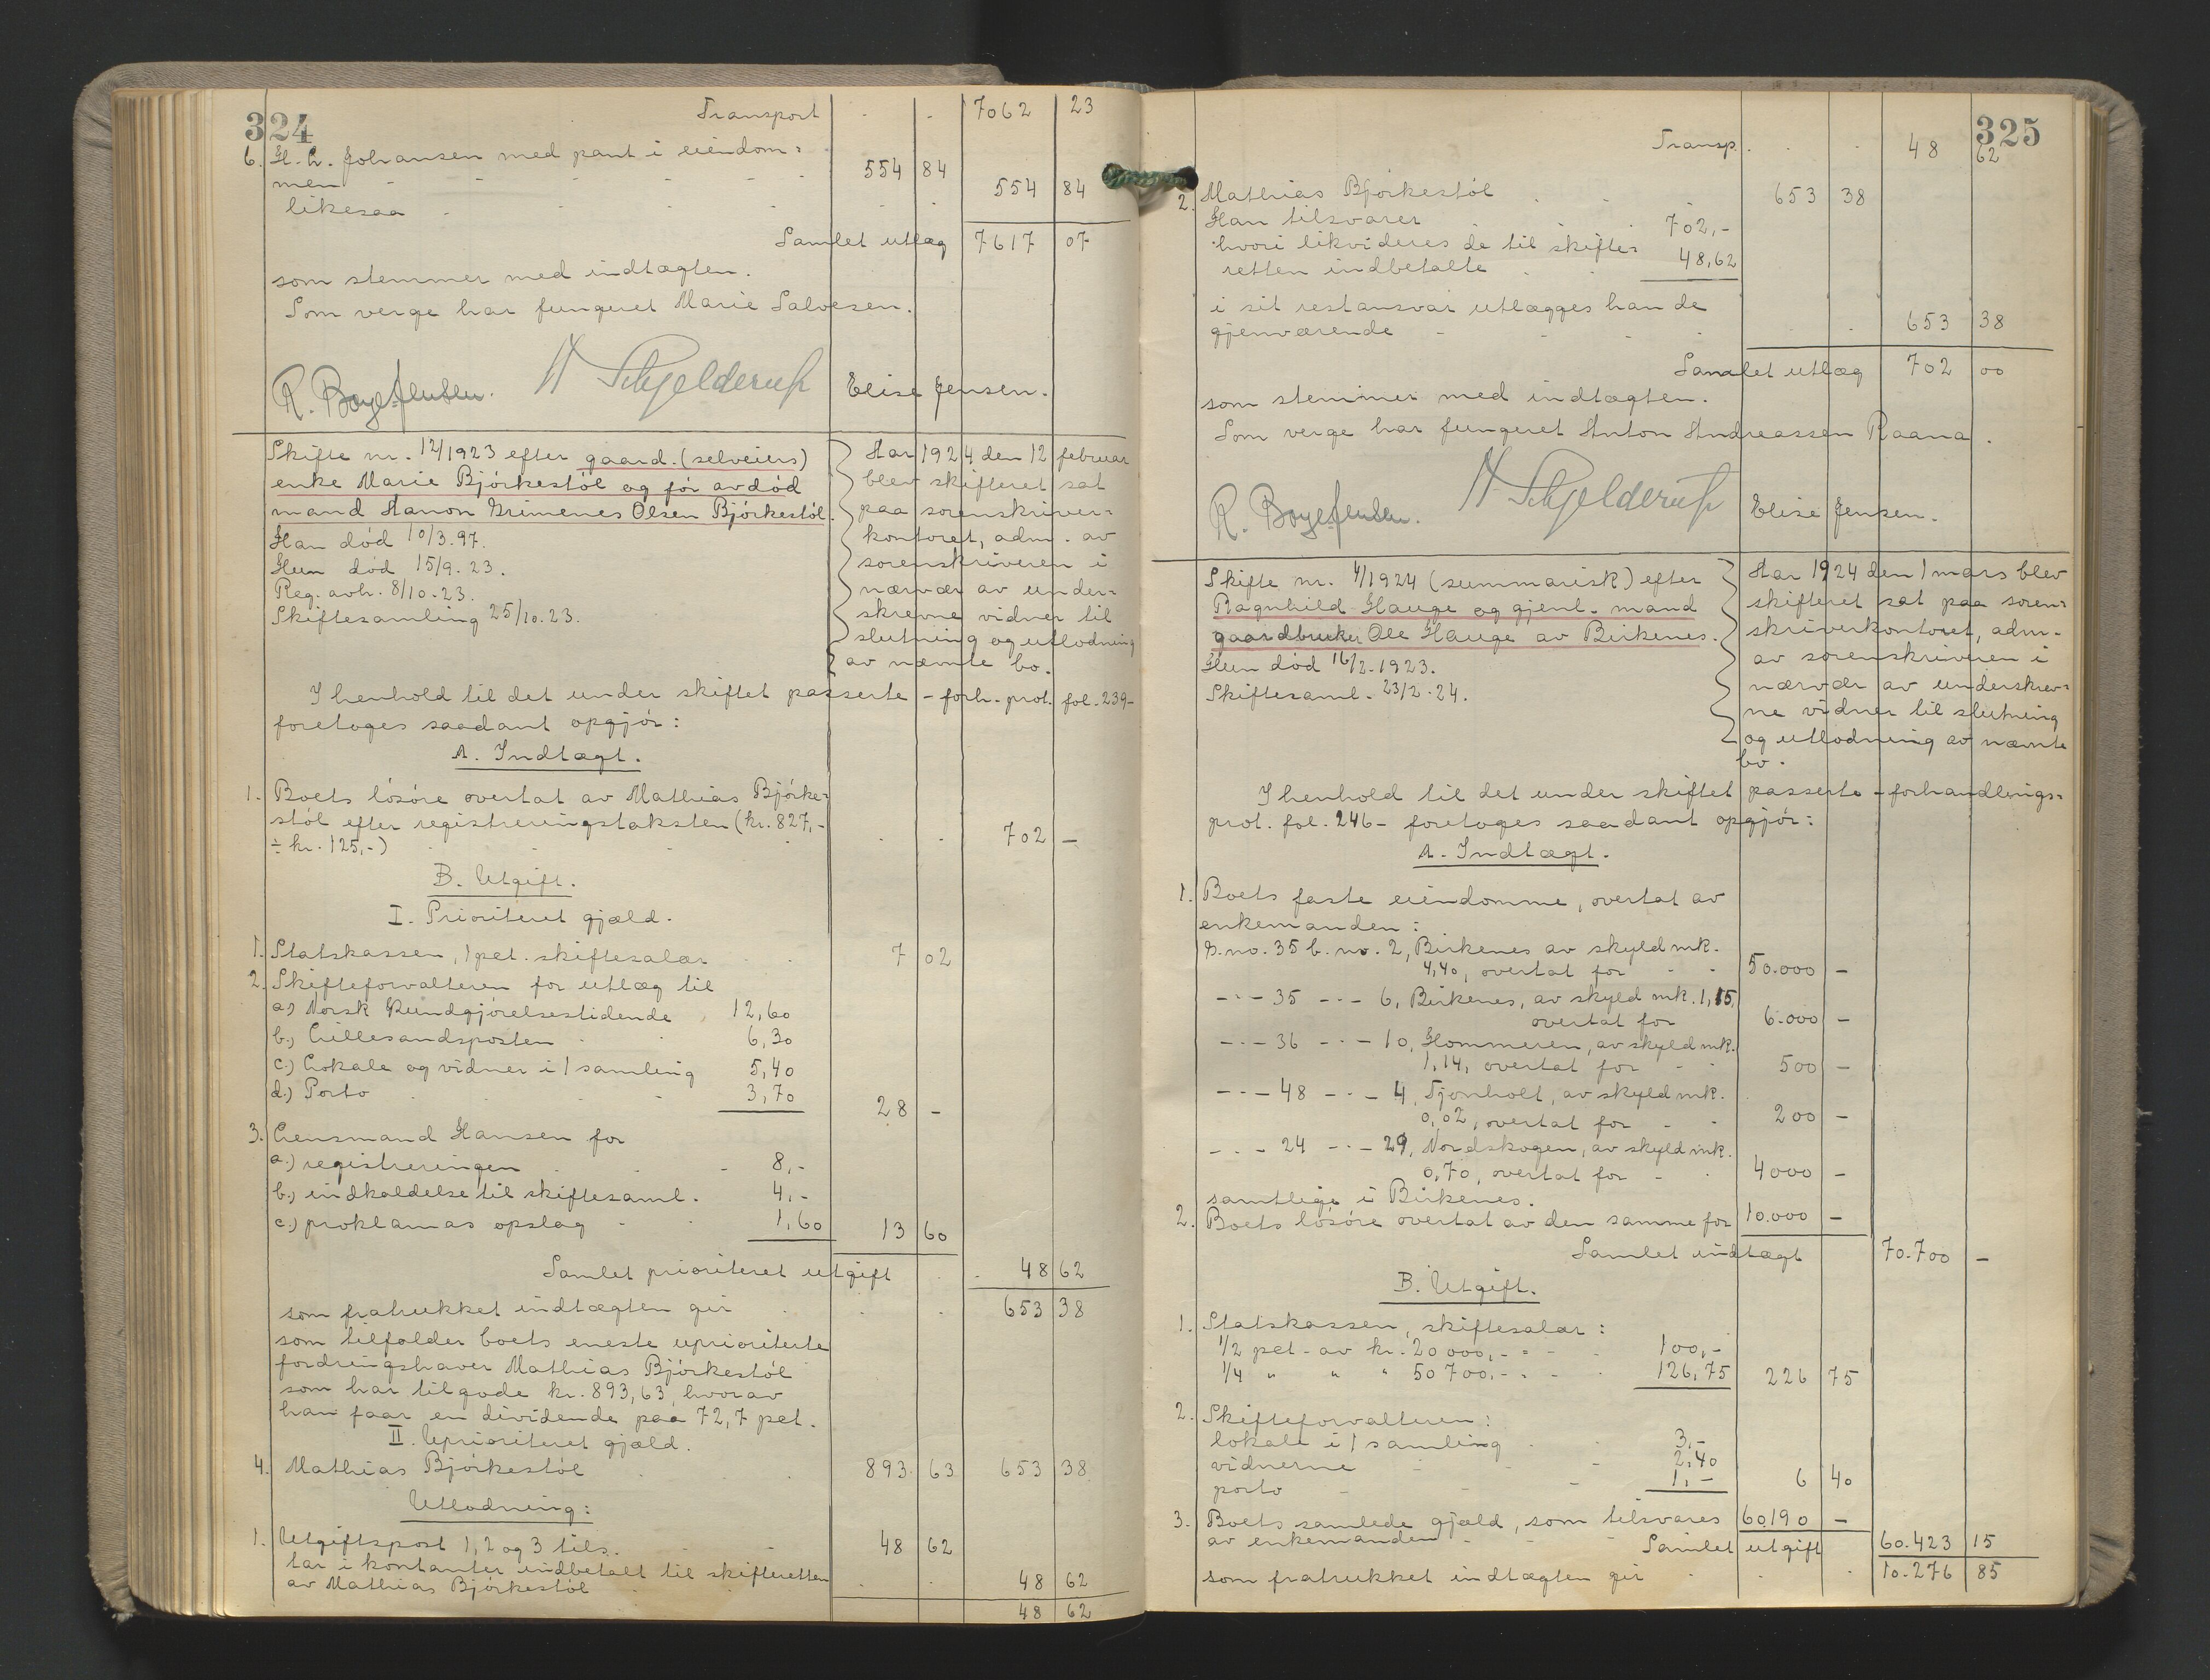 324
Transport . . 7062 23
6. H. C. Johansen med pant i eiendom=
men - - - - - 554 84
likesaa - - - - - 554 84
Samlet utlæg 7617 07
som stemmer med indtægten.
Som verge har fungeret Marie Salvesen.
R. Boye Jensen. H Schjelderup Elise Jensen.
Skifte nr. 12/1923 efter gaard. (selveiers)
enke Marie Bjørkestøl og før avdød
mand Hanon Grimenes Olsen Bjørkestøl.
Han død 10/3.97.
Hun død 15/9.23.
Reg. avh. 8/10.23.
Skiftesamling 25/10.23.
Aar 1924 den 12 februar
blev skifteret sat
paa sorenskriver=
kontoret, adm. av
sorenskriveren i
nærvær av under=
skrevne vidner til
slutning og utlodning
av nævnte bo.
I henhold til det under skiftet passerte - forh. prot. fol. 239-
foretoges saadant opgjør:
A. Indtægt.
1. Boets løsøre overtat av Mathias Bjørke=
støl efter registreringstaksten (kr. 827,-
÷ kr. 125,-) - - - . . 702 -
B. Utgift.
I. Prioriteret gjæld.
1. Statskassen, 1 pct. skiftesalær . . 7 02
2. Skifteforvalteren for utlæg til
a) Norsk Kundgjørelsestidende 12,60
b.) Lillesandsposten 6,30
c.) Lokale og vidner i 1 samling 5,40
d.) Porto 3,70 28 -
3. Lensmand Hansen for
a.) registreringen 8,-
b.) indkaldelse til skiftesaml. 4,-
c.) proklamas opslag 1,60 13 60
Samlet prioriteret utgift . . 48 62
som fratrukket indtægten gir . . 653 38
som tilfalder boets eneste uprioriterte
fordringshaver Mathias Bjørkestøl
som har tilgode kr. 893,63, hvorav
han faar en dividende paa 72,7 pct.
II. Uprioriteret gjæld.
4. Mathias Bjørkestøl . . 893 63 653 38
Utlodning:
1. Utgiftspost 1, 2 og 3 tils. - - 48 62
tar i kontanter indbetalt til skifteretten
av Mathias Bjørkestøl . . 48 62
48 62
325
Transp. . . 48 62
2. Mathias Bjørkestøl . . . 653 38
Han tilsvarer 702,-
hvori likvideres de til skifte=
retten indbetalte 48,62
i sit restansvar utlægges han de
gjenværende - - - . . 653 38
Samlet utlæg 702 00
som stemmer med indtægten.
Som verge har fungeret Anton Andreassen Raana.
R. Boye Jensen. H Schjelderup Elise Jensen.
Skifte nr. 4/1924 (summarisk) efter
Ragnhild Hauge og gjenl. mand
gaardbruker Ole Hauge av Birkenes.
Hun død 16/2.1923.
Skiftesaml. 23/2.24.
Aar 1924 den 1 mars blev
skifteret sat paa soren=
skriverkontoret, adm.
av sorenskriveren i
nærvær av underskrev=
ne vidner til slutning
og utlodning av nævnte
bo.
I henhold til det under skiftet passerte - forhandlings=
prot. fol. 246 - foretoges saadant opgjør:
A. Indtægt.
1. Boets faste eiendomme, overtat av
enkemanden:
G.no. 35 b. no. 2, Birkenes av skyld mk.
4,40, overtat for - - 50.000 -
- " - 35 - " - 6, Birkenes, av skyld mk. 1,15,
overtat for 6.000 -
- " - 36 - " - 10, Hommeren, av skyld mk.
1,14, overtat for - - 500 -
- " - 48 - " - 4, Tjønholt, av skyld mk.
0,02, overtat for - - 200 -
- " - 24 - " - 29, Nordskogen, av skyld mk.
0,70, overtat for - - 4000 -
samtlige i Birkenes.
2. Boets løsøre overtat av den samme for 10.000 -
Samlet indtægt 70.700 -
B. Utgift.
1. Statskassen, skiftesalær:
1/2 pct. av kr. 20 000,- = - 100,-
1/4 " " " 50 700,- = - 126,75 226 75
2. Skifteforvalteren:
lokale i 1 samling 3,-
vidnerne 2,40
porto 1,- 6 40
3. Boets samlede gjæld, som tilsvares 60.190 -
av enkemanden - - Samlet utgift 60.423 15
som fratrukket indtægten gir . . 10.276 85